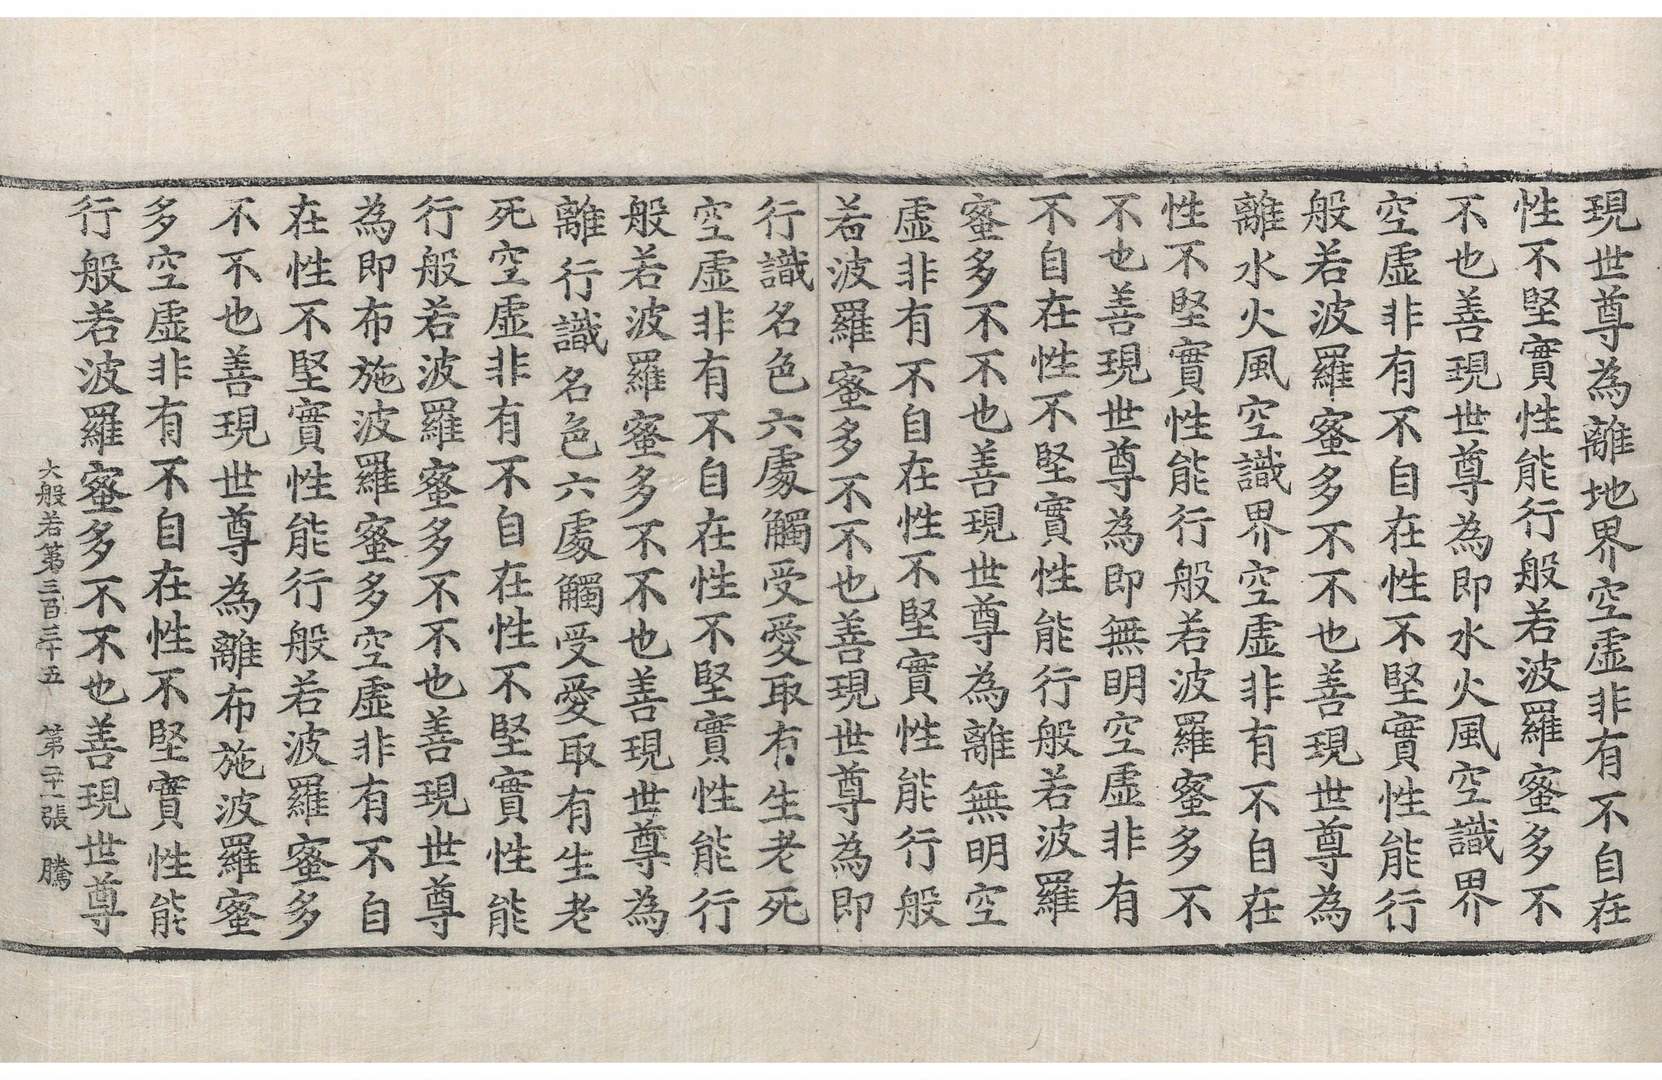 現世尊為離地界空虛非有不自在
性不堅實性能行般若波羅蜜多不
不也善現世尊為即水火風空識界
空虛非有不自在性不堅實性能行
般若波羅蜜多不不也善現世尊為
離水火風空識界空虛非有不自在
性不堅實性能行般若波羅蜜多不
不也善現世尊為即無明空虛非有
不自在性不堅實性能行般若波羅
蜜多不不也善現世尊為離無明空
虛非有不自在性不堅實性能行般
若波羅蜜多不不也善現世尊為即
行識名色六處觸受愛取有生老死
空虛非有不自在性不堅實性能行
般若波羅蜜多不不也善現世尊為
離行識名色六處觸受愛取有生老
死空虛非有不自在性不堅實性能
行般若波羅蜜多不不也善現世尊
為即布施波羅蜜多空虛非有不自
在性不堅實性能行般若波羅蜜多
不不也善現世尊為離布施波羅蜜
多空虛非有不自在性不堅實性能
行般若波羅蜜多不不也善現世尊
大般若第三百三十五 第二十一張 騰